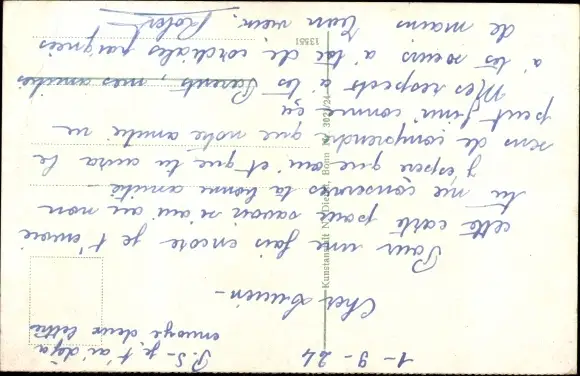 1-9-24
P.S- je t'ai déjà
envoyé deux lettre
Cher Lucien-
Pour une fois encore je t'envoie
cette carte pour savoir si oui ou non
tu me conserves ta bonne amitié-
J'espère que oui et que tu auras le
sens de comprendre que notre amitié ne
peut finir comme ça
Mes respects à tes Parents, mes amitiés
à tes soeurs à toi de cordiales poignées
de mains Ton vieux Robert
Kunstanstalt N. Diedolt, Bonn
13551